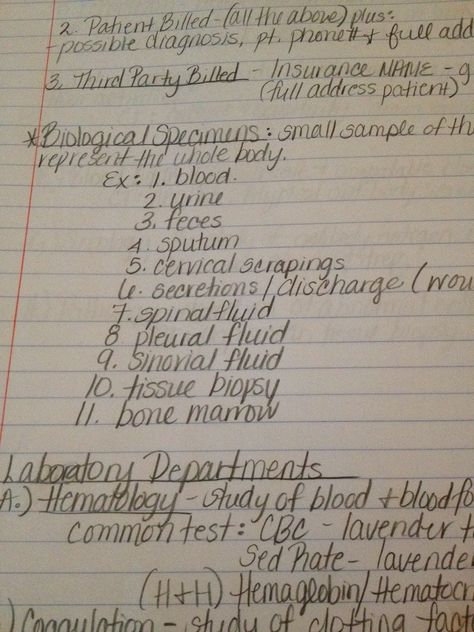 2. Patient Billed - (all the above) plus:
- possible diagnosis, pt. phone# + full add
3. Third Party Billed - Insurance NAME - g
(full address patient)
*Biological Specimens: small sample of th
represent the whole body.
Ex: 1. blood.
2. urine
3. feces
4. sputum
5. cervical scrapings
6. secretions / discharge (wou
7. spinal fluid
8 pleural fluid
9. sinovial fluid
10. tissue biopsy
11. bone marrow
Laboratory Departments
A.) Hematology - study of blood + blood fo
common test: CBC - lavender t
Sed Rate - lavende
(H+H) Hemaglobin/Hematocr
) Coagulation - study of clotting fact